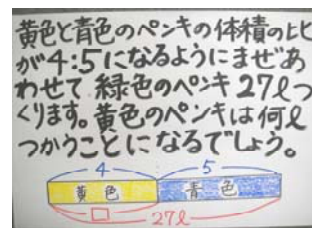 黄色と青色のペンキの体積の比
が4:5になるようにまぜあ
わせて 緑色のペンキ 27ℓつ
くります。黄色のペンキは何ℓ
つかうことになるでしょう。
4 5
黄色 青色
□ 27ℓ